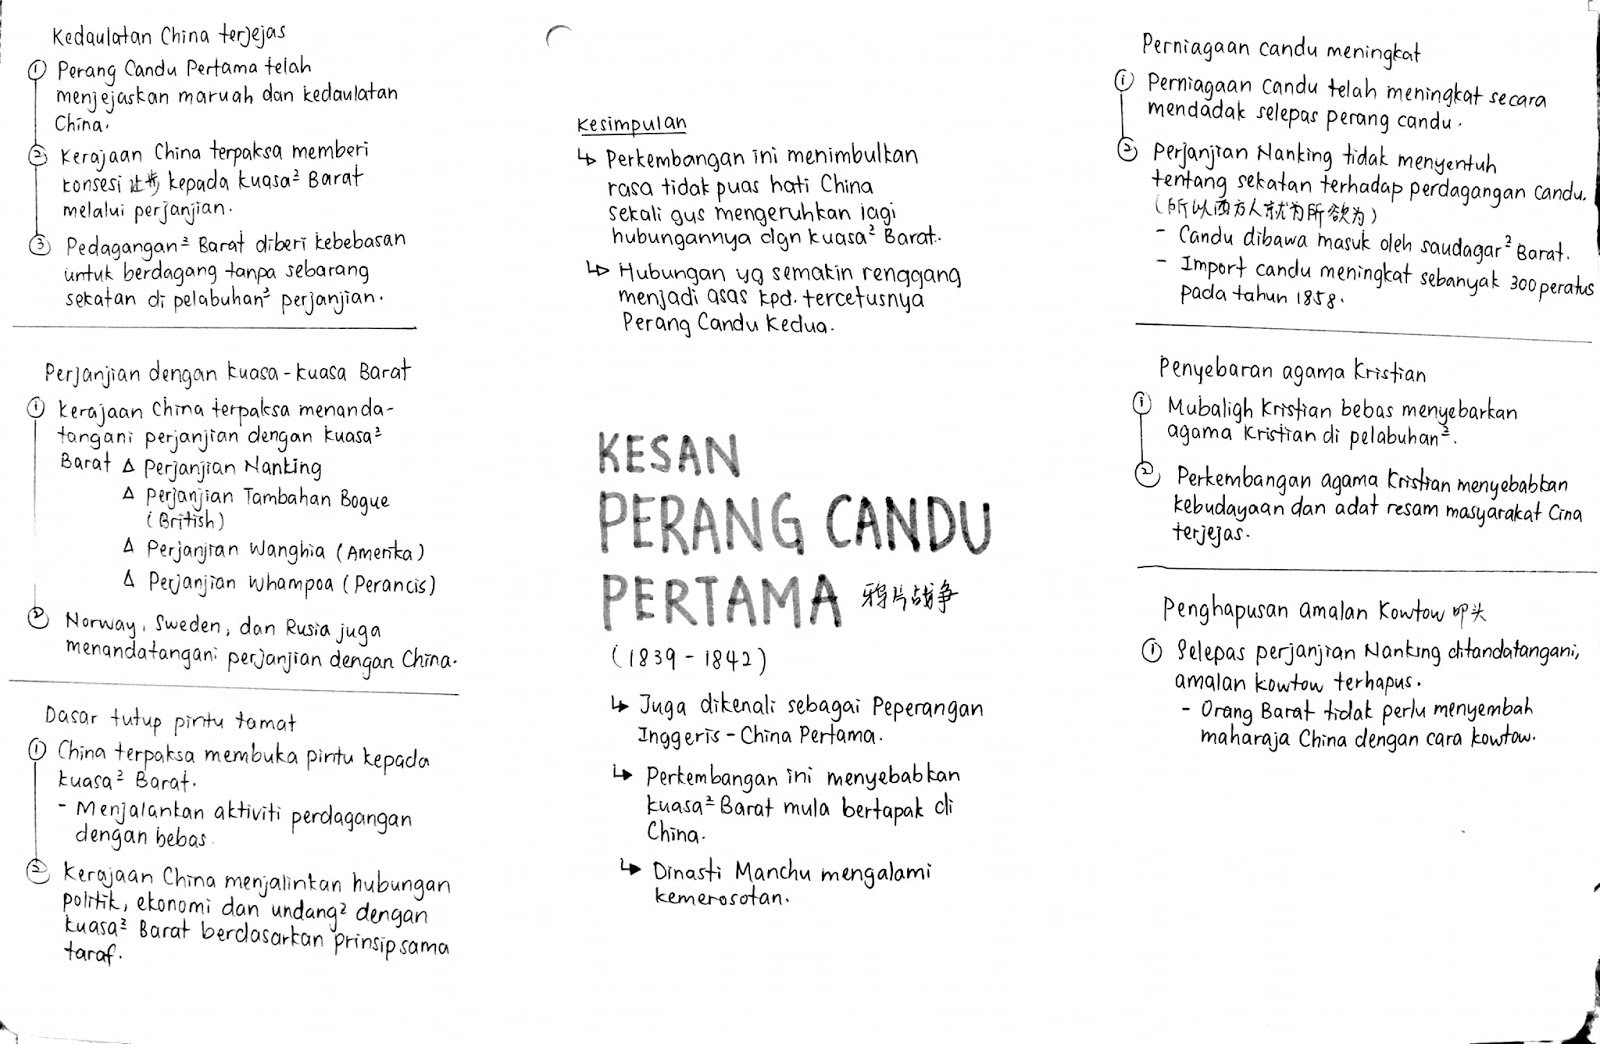 Kedaulatan China terjejas
① Perang Candu Pertama telah
menjejaskan maruah dan kedaulatan
China.
② Kerajaan China terpaksa memberi
konsesi 让步 kepada kuasa² Barat
melalui perjanjian.
③ Pedagangan² Barat diberi kebebasan
untuk berdagang tanpa sebarang
sekatan di pelabuhan² perjanjian.
Perjanjian dengan kuasa-kuasa Barat
① Kerajaan China terpaksa menanda-
tangani perjanjian dengan kuasa²
Barat △ Perjanjian Nanking
△ Perjanjian Tambahan Bogue
(British)
△ Perjanjian Wanghia (Amerika)
△ Perjanjian Whampoa (Perancis)
② Norway, Sweden, dan Rusia juga
menandatangani perjanjian dengan China.
Dasar tutup pintu tamat
① China terpaksa membuka pintu kepada
kuasa² Barat.
- Menjalankan aktiviti perdagangan
dengan bebas.
② Kerajaan China menjalinkan hubungan
politik, ekonomi dan undang² dengan
kuasa² Barat berdasarkan prinsip sama
taraf.
Kesimpulan
↳ Perkembangan ini menimbulkan
rasa tidak puas hati China
sekali gus mengeruhkan lagi
hubungannya dgn kuasa² Barat.
↳ Hubungan yg semakin renggang
menjadi asas kpd. tercetusnya
Perang Candu Kedua.
KESAN
PERANG CANDU
PERTAMA 鸦片战争
(1839 - 1842)
↳ Juga dikenali sebagai Peperangan
Inggeris - China Pertama.
↳ Perkembangan ini menyebabkan
kuasa² Barat mula bertapak di
China.
↳ Dinasti Manchu mengalami
kemerosotan.
Perniagaan candu meningkat
① Perniagaan Candu telah meningkat secara
mendadak selepas perang candu.
② Perjanjian Nanking tidak menyentuh
tentang sekatan terhadap perdagangan candu.
(所以西方人就为所欲为)
- Candu dibawa masuk oleh saudagar² Barat.
- Import candu meningkat sebanyak 300 peratus
pada tahun 1858.
Penyebaran agama Kristian
① Mubaligh Kristian bebas menyebarkan
agama Kristian di pelabuhan².
② Perkembangan agama Kristian menyebabkan
kebudayaan dan adat resam masyarakat Cina
terjejas.
Penghapusan amalan Kowtow 叩头
① Selepas perjanjian Nanking ditandatangani,
amalan kowtow terhapus.
- Orang Barat tidak perlu menyembah
maharaja China dengan cara kowtow.